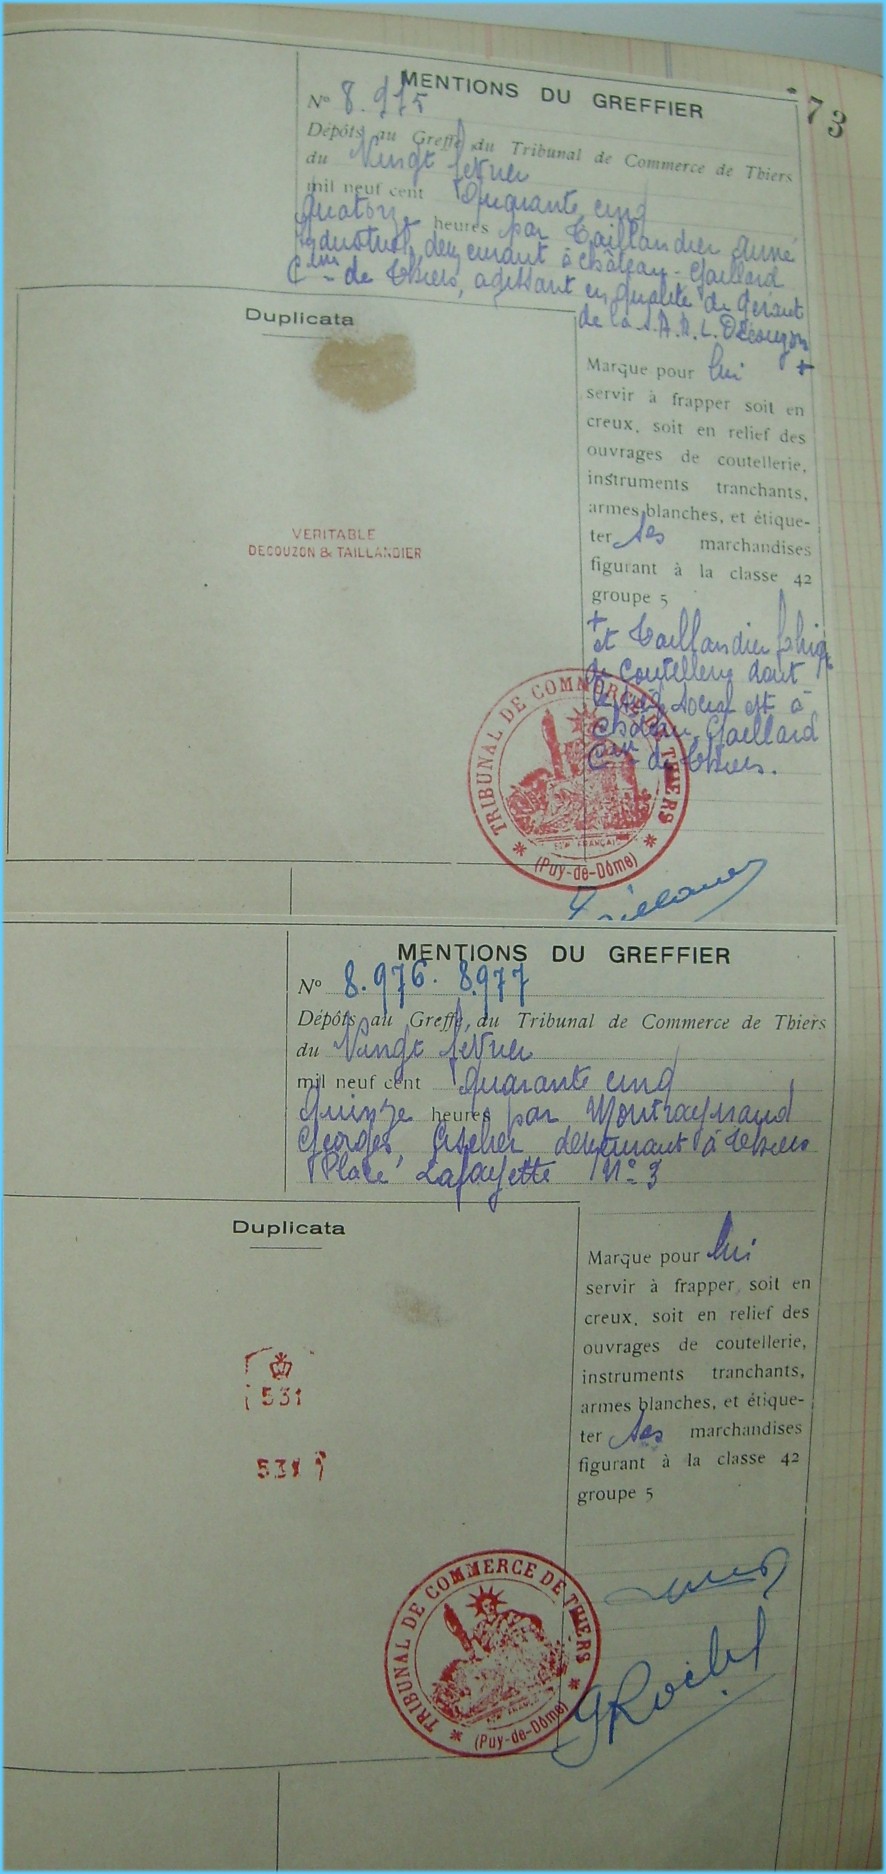 73
MENTIONS DU GREFFIER
N° 8.975
Dépôts au Greffe, du Tribunal de Commerce de Thiers
du Vingt fevrier
mil neuf cent quarante cinq
quatorze heures par Taillandier
Industriel, demeurant à Château-Gaillard
Cne de Thiers, agissant en qualité de Gérant
de la S.A.R.L. Découzon
+
Duplicata
VERITABLE
DECOUZON & TAILLANDIER
Marque pour lui
servir à frapper soit en
creux, soit en relief des
ouvrages de coutellerie,
instruments tranchants,
armes blanches, et étique-
ter ses marchandises
figurant à la classe 42
groupe 5
+
et Taillandier
de Coutellerie dont
le siège social est à
Château-Gaillard
Cne de Thiers.
TRIBUNAL DE COMMERCE DE THIERS
(Puy-de-Dôme)
MENTIONS DU GREFFIER
N° 8.976. 8.977
Dépôts au Greffe, du Tribunal de Commerce de Thiers
du Vingt fevrier
mil neuf cent quarante cinq
quinze heures par
Georges, demeurant à Thiers
Place Lafayette N° 3
Duplicata
531
531
Marque pour lui
servir à frapper, soit en
creux, soit en relief des
ouvrages de coutellerie,
instruments tranchants,
armes blanches, et étique-
ter ses marchandises
figurant à la classe 42
groupe 5
TRIBUNAL DE COMMERCE DE THIERS
(Puy-de-Dôme)